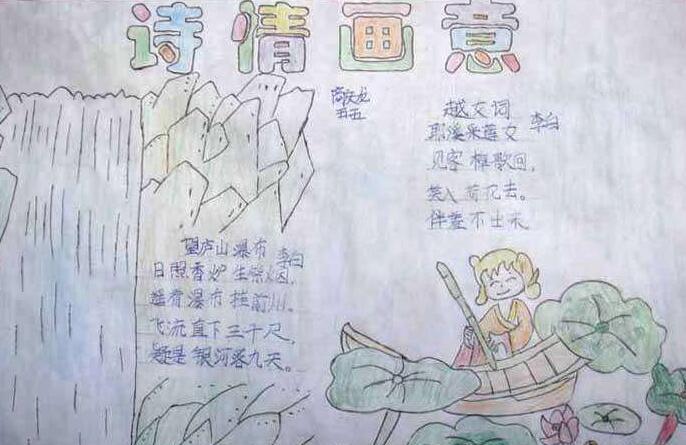 诗情画意
越女词
李白
耶溪采莲女
见客棹歌回,
笑入荷花去。
伴羞不出来
望庐山瀑布
李白
日照香炉生紫烟,
遥看瀑布挂前川。
飞流直下三千尺,
疑是银河落九天。